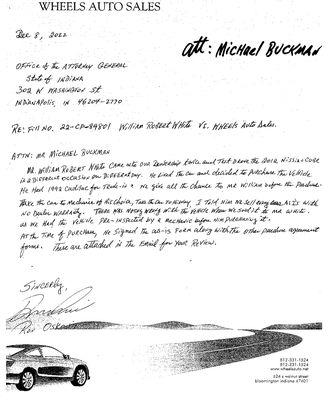 WHEELS AUTO SALES
Dec 8, 2022
att: Michael Buckman
Office of the Attorney General
State of Indiana
302 W Washington St
Indianapolis, IN 46204-2770
Re: File No. 22-CP-34801 William Robert White Vs. Wheels Auto Sales.
ATTN: Mr Michael Buckman
Mr. William Robert White Came into our Dealership twice and Test Drove the 2012 Nissan Cube
in 2 Different occasion on Different Day. He liked the car and decided to Purchase the Vehicle.
He Had 1992 Cadillac for Trade-in. We give all to chance to Mr William before the Purchase
Take the car to Mechanic of His Choice, Take the Car to Highway. I Told Him we Sell every car AS IS with
No Dealer Warranty. There was Nothing wrong with the vehicle when we sold it to Mr White.
as we Had the Vehicle Pre-inspected by a mechanic before Him purchasing it.
At the Time of Purchase, He Signed the as-is Form along with the other purchase agreement
forms. These are attached in the Email for your Review.
Sincerely,
812-331-1524
812-331-1524
www.wheelsauto.net
624 s walnut street
bloomington indiana 47401